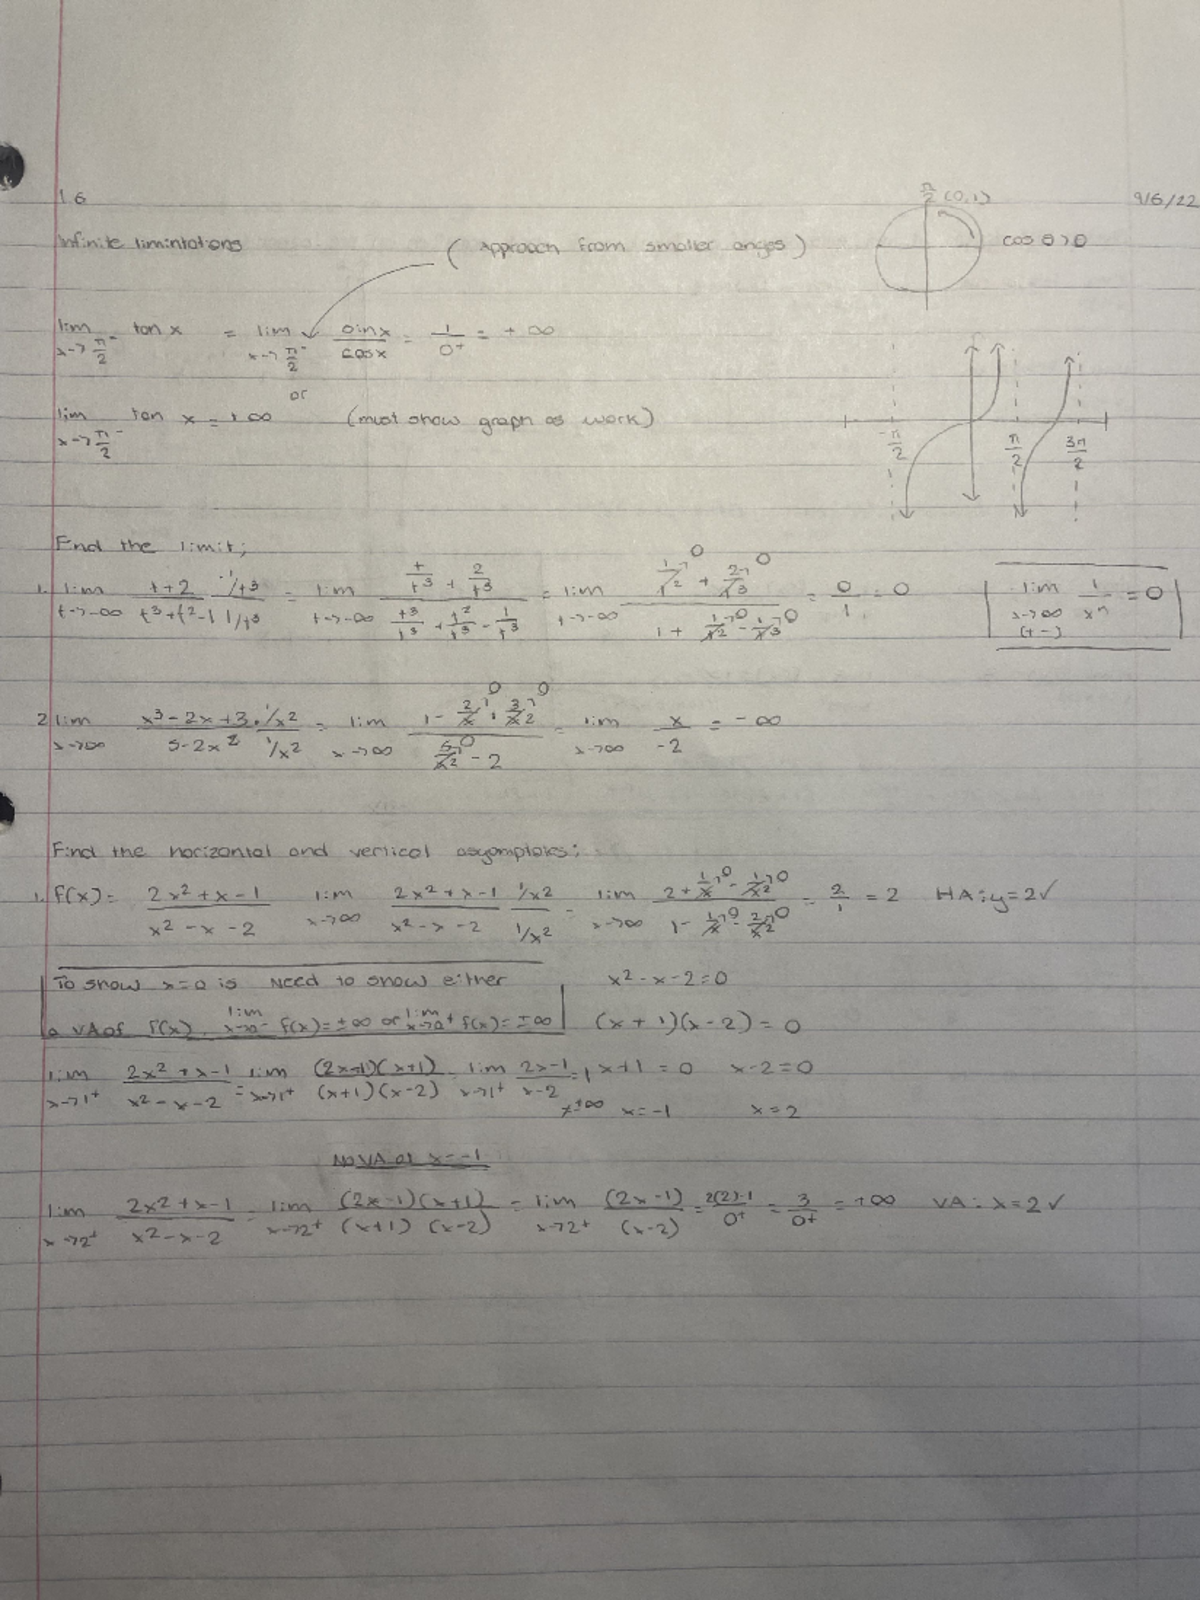 1.6 9/6/22
π/2 (0,1)
Infinite limintations (Approach from smaller anges) cos θ > 0
lim x→π/2⁻ tan x = lim x→π/2⁻ sinx/cosx = 1/0⁺ = +∞
or
lim x→π/2⁻ tan x = +∞ (must show graph as work)
-π/2 π/2 3π/2
Find the limit;
1. lim t→-∞ t+2/t³+t²-1 · 1/t³/1/t³ = lim t→-∞ t/t³ + 2/t³ / t³/t³ + t²/t³ - 1/t³ = lim t→-∞ 1/t²→0 + 2/t³→0 / 1 + 1/t→0 - 1/t³→0 = 0/1 = 0
lim x→∞ (+-) 1/xⁿ = 0
2 lim x→∞ x³-2x+3/5-2x² · 1/x²/1/x² = lim x→∞ 1 - 2/x→0 + 3/x²→0 / 5/x²→0 - 2 = lim x→∞ x/-2 = -∞
Find the horizontal and vertical asymptotes;
1. f(x) = 2x²+x-1/x²-x-2 lim x→∞ 2x²+x-1/x²-x-2 1/x²/1/x² = lim x→∞ 2+1/x→0 - 1/x²→0 / 1-1/x→0 - 2/x²→0 = 2/1 = 2 HA: y=2 ✓
To show x=a is Need to show either x²-x-2=0
a VA of f(x). lim x→a⁻ f(x)=±∞ or lim x→a⁺ f(x)=±∞ (x+1)(x-2)=0
lim x→1⁺ 2x²+x-1/x²-x-2 = lim x→1⁺ (2x-1)(x+1)/(x+1)(x-2) = lim x→1⁺ 2x-1/x-2 = 1 x+1=0 x-2=0
≠±∞ x=-1 x=2
No VA at x=-1
lim x→2⁺ 2x²+x-1/x²-x-2 = lim x→2⁺ (2x-1)(x+1)/(x+1)(x-2) = lim x→2⁺ (2x-1)/(x-2) = 2(2)-1/0⁺ = 3/0⁺ = +∞ VA: x=2 ✓